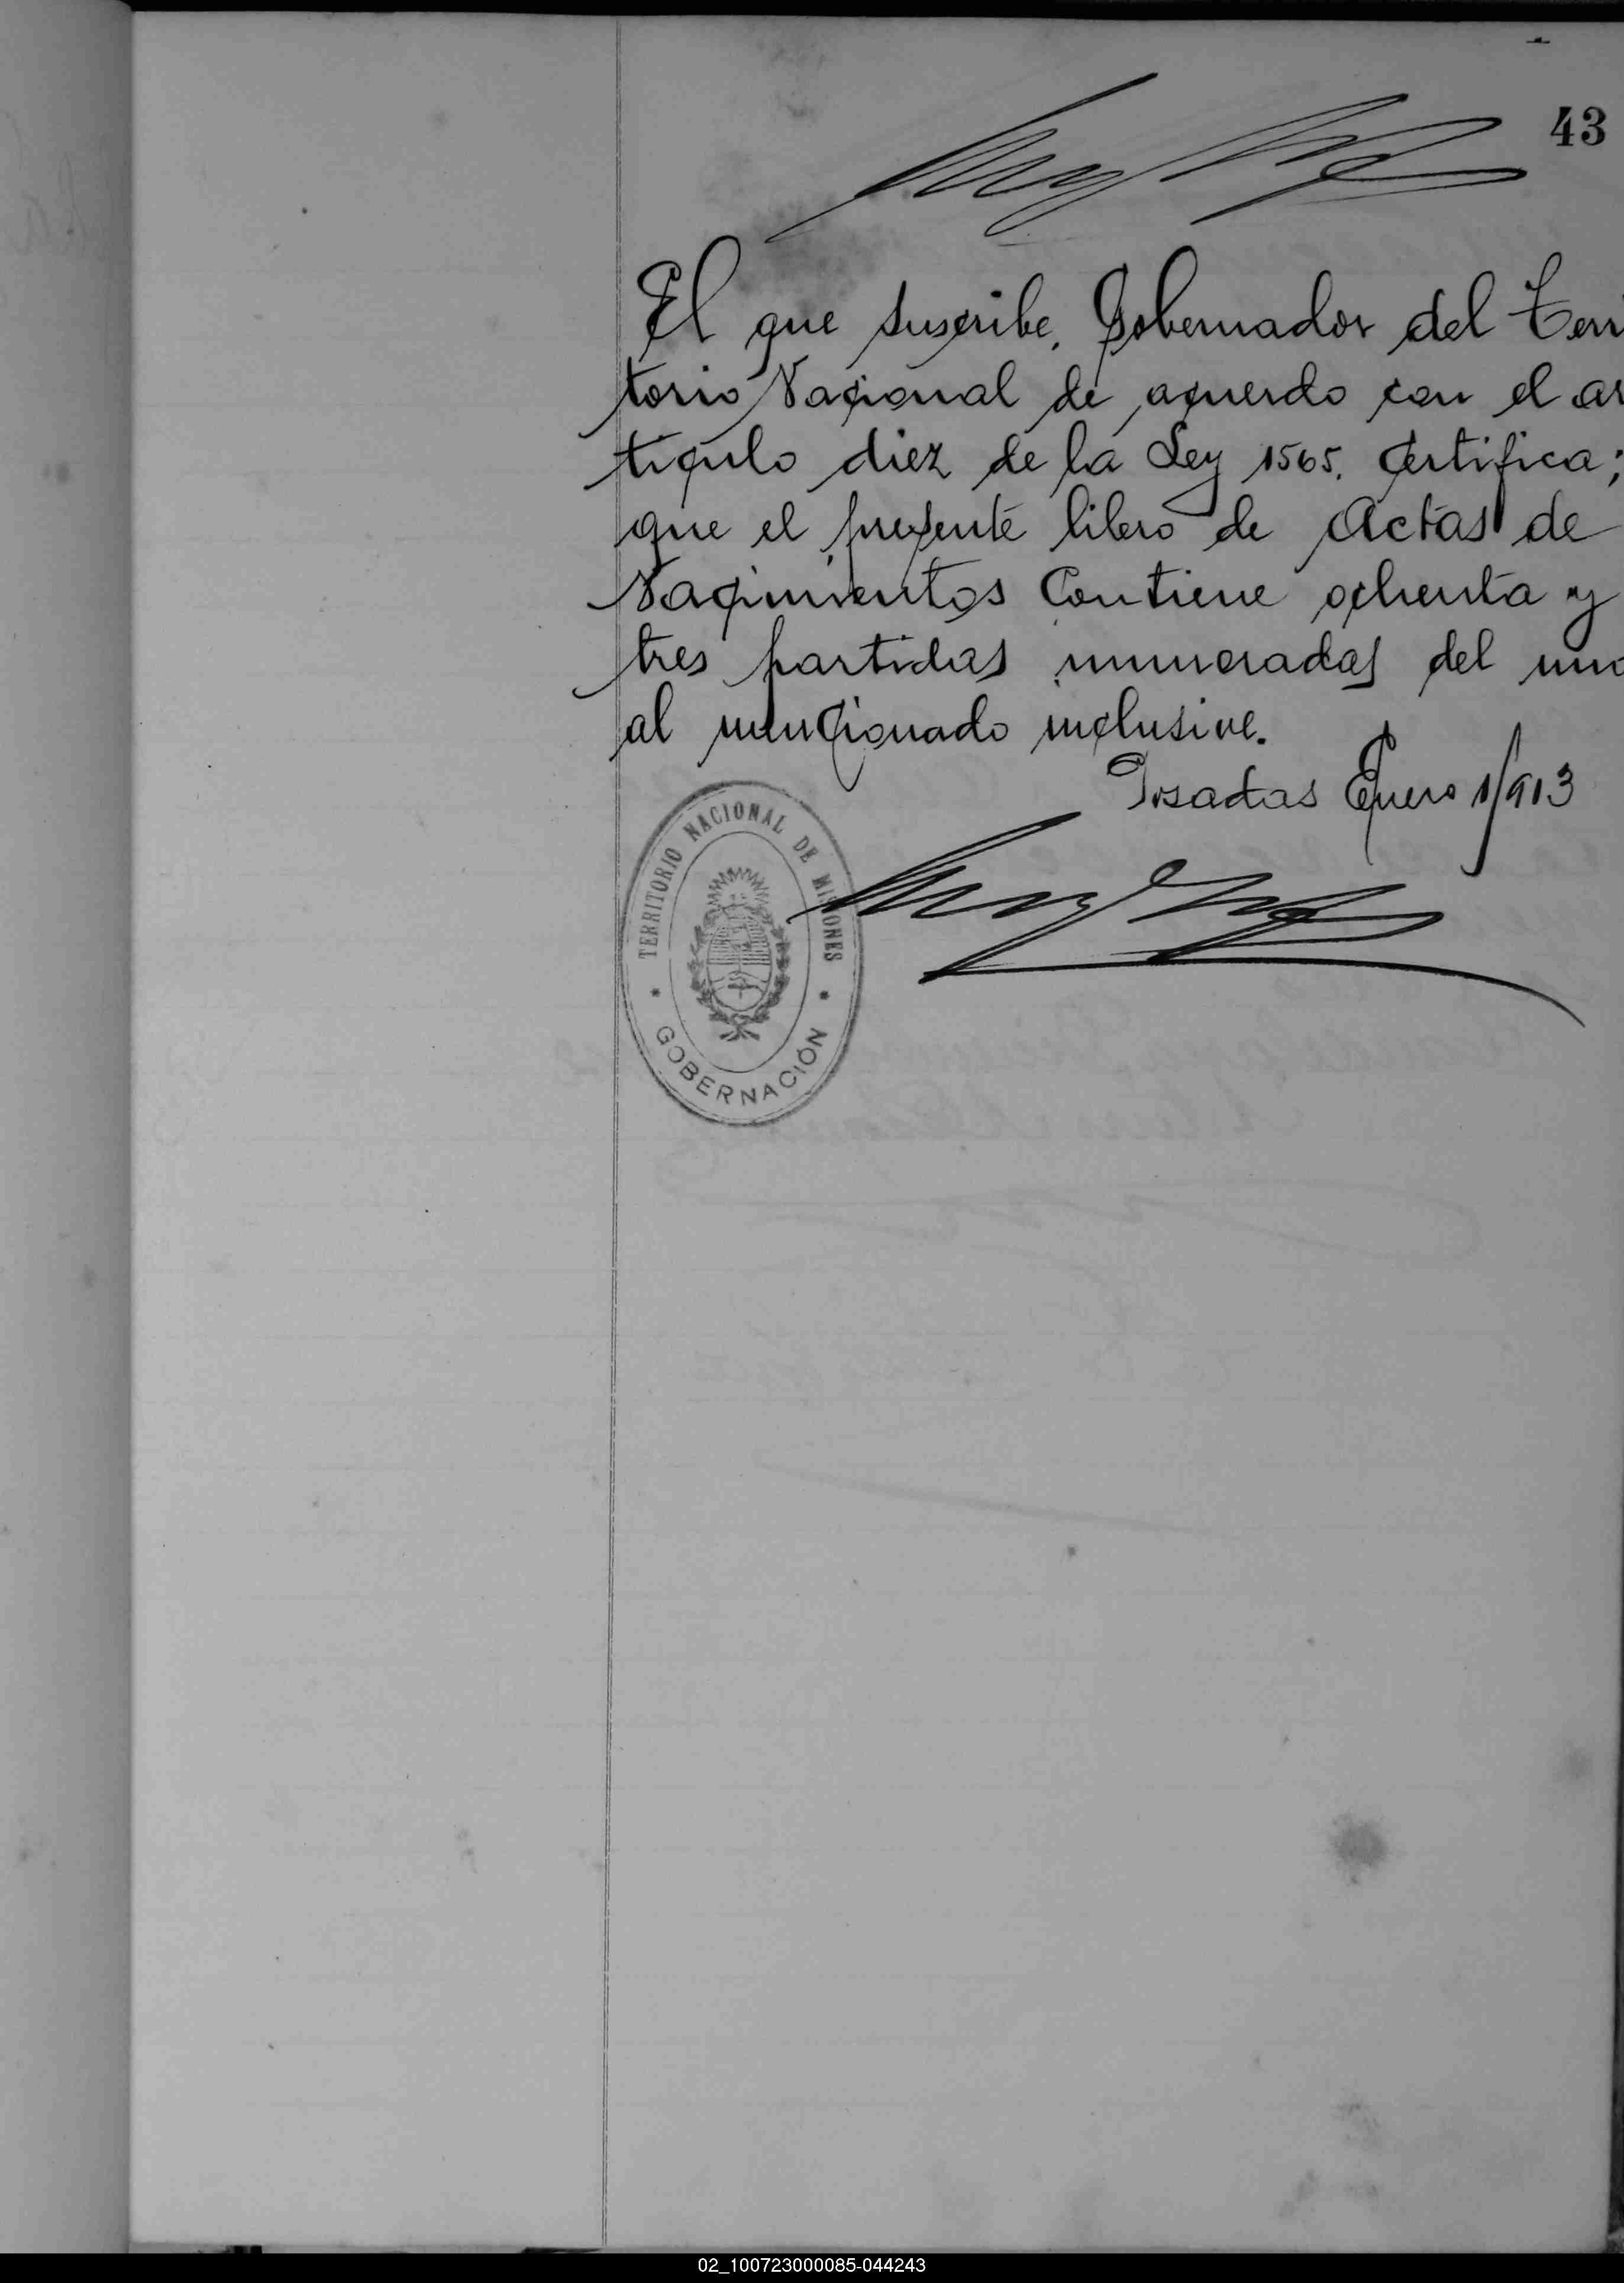 43
El que suscribe, Gobernador del Terri
torio Nacional de acuerdo con el ar
tículo diez de la Ley 1565. Certifica;
que el presente libro de Actas de
Nacimientos Contiene ochenta y
tres partidas numeradas del uno
al mencionado inclusive.
Posadas Enero 1/913
TERRITORIO NACIONAL DE MISIONES
GOBERNACIÓN
02_100723000085-044243